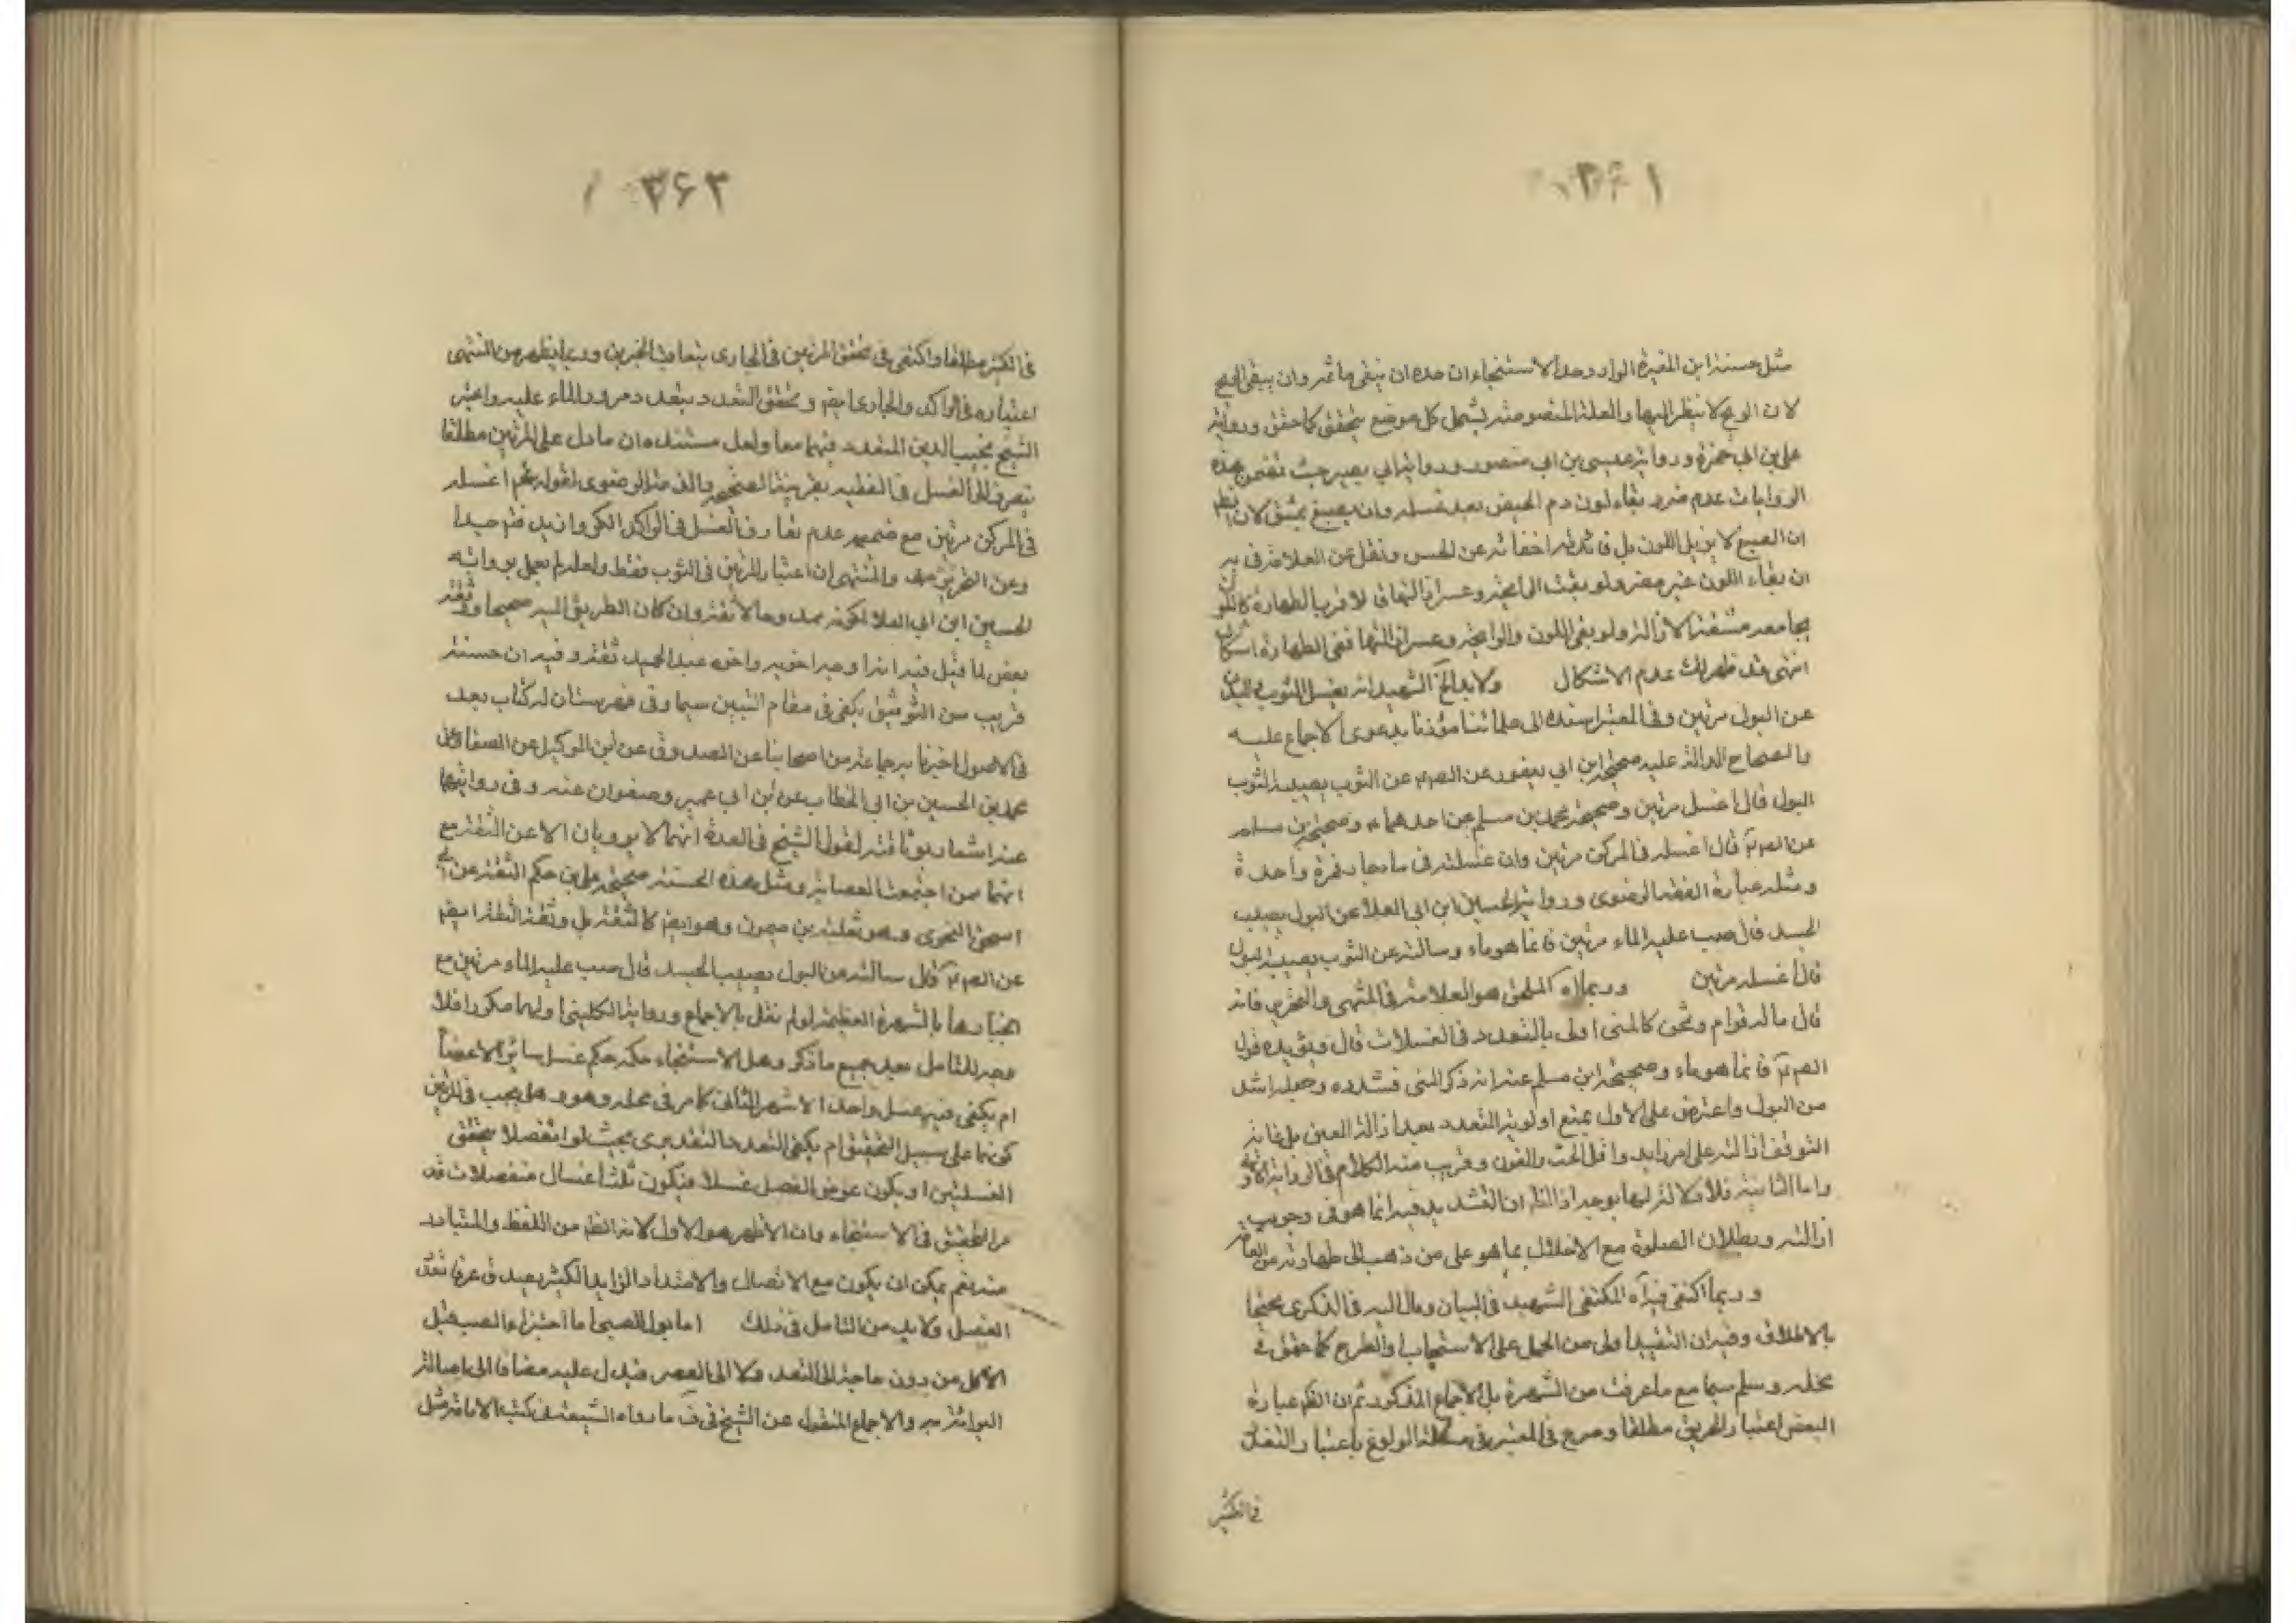 ۳۶۱
مثل حسنة ابن المغيرة الوارد وحد الاستنجاء ان حده ان ينقى ما ثمه وان يبقى الريح
لان الريح لا ينظر اليها والعلة المنصوصة تشمل كل موضع يتحقق كما حقق ورواية
علي بن ابي حمزة ورواية عيسى بن ابي منصور ورواية ابي بصير حيث تضمن هذه
الروايات عدم ضرر بقاء لون دم الحيض بعد غسله وان يصبغ بمشق لان الظ
ان الصبغ لا يزيل اللون بل فائدته اخفائه عن الحس ونقل عن العلامة في يه
ان بقاء اللون غير مضر ولو بقيت الرايحة وعسر ازالتها فالاقرب الطهارة كاللون
بجامع مشقة الازالة ولو بقى اللون والرايحة وعسر ازالتهما ففى الطهارة اشكال
انتهى قد ظهر لك عدم الاشكال ولابد الخ الشهيد انه يغسل الثوب والبدن
عن البول مرتين وفى المعتبر اسنده الى علمائنا مؤذنا بدعوى الاجماع عليه
والصحاح الدالة عليه صحيحة ابن ابي يعفور عن الصم عن الثوب يصيبه الثوب
البول قال اغسل مرتين وصحيحة محمد بن مسلم عن احدهما وصحيحة بن مسلم
عن الصم قال اغسله في المركن مرتين وان غسلته في ماء جار فمرة واحدة
ومثله عبارة الفقه الرضوى ورواية الحسين ابن ابي العلا عن البول يصيب
الجسد قال صب عليه الماء مرتين فانما هو ماء وسالته عن الثوب يصيبه البول
قال اغسله مرتين وربما اه الملحق هو العلامة في المنتهى والتحرير فانه
قال ما له قوام وثخن كالمنى اولى بالتعدد في الغسلات قال ويؤيده قول
الصم فانما هو ماء وصحيحة ابن مسلم عنه انه ذكر المنى فشدده وجعله اشد
من البول واعترض على الاول بمنع اولوية التعدد بعد ازالة العين بل غاية
التوقف ازالته على امر زايد واقل الحت والفرك وقريب منه الكلام في الرواية الاولى
واما الثانية فلا دلالة لها بوجه اذ الظ ان التشديد فيه انما هو في وجوب
ازالته وبطلان الصلوة مع الاخلال بها هو على من ذهب الى طهارته من العامة
وربما اكتفى فيه اه المكتفى الشهيد في البيان ومال اليه في الذكرى محتجا
بالاطلاق وفيه ان التقييد اولى من الحمل على الاستحباب والطرح كما حقق في
محله وسلم سيما مع ما عرفت من الشهرة بل الاجماع المذكور ثم ان الظ عبارة
البعض اعتبار المرتين مطلقا وصرح في المعتبر في مسئلة الولوغ باعتبار التعدد
في الكثير
۳۶۲
في الكثير مطلقا واكتفى في تحقق المرتين في الجارى بتعاقب الجريتين وربما يظهر من المنتهى
اعتباره في الراكد والجارى ايضم وتحقق التعدد بتعدد مرور الماء عليه واعتبر
الشيخ نجيب الدين التعدد فيهما معا ولعل مستنده ان ما دل على المرتين مطلقا
ينصرف الى الغسل في القليل بقرينة الصحيحة والفقه الرضوى لقوله عم اغسله
في المركن مرتين مع ضميمه عدم تعارف الغسل في الراكد الكر وان يد فيه جيدا
وعن التحرير والمنتهى ان اعتبار المرتين في الثوب فقط ولعله لم يعمل برواية
الحسين ابن ابي العلا لكونه ممدوحا لا ثقة وان كان الطريق اليه صحيحا وثقه
بعض لما قيل فيه انه اوجه اخويه واخوه عبد الحميد ثقة وفيه ان حسنته
قريب من التوثيق يكفى في مقام التبيين سيما وفى فهرستان له كتاب يعد
في الاصول اخبرنا به جماعة من اصحابنا عن الصدوق عن ابن المتوكل عن الصفار عن
محمد بن الحسين بن ابي الخطاب عن ابن ابي عمير وصفوان عنه وفى روايتهما
عنه اشعار بوثاقته لقول الشيخ في العدة انهما لا يرويان الا عن الثقة مع
انهما ممن اجتمعت العصابة ومثل هذه الحسنة صحيحة علي بن حكم الثقة عن ابي
اسحق النحوى وهو ثعلبة بن ميمون وهو ايضم كالثقة بل وثقة الثقة ايضم
عن الصم قال سالته عن البول يصيب الجسد قال صب عليه الماء مرتين مع
انجبارها بالشهرة العظيمة لو لم نقل بالاجماع ورواية الكلينى لهما مكررا فلا
وجه للتامل بعد جميع ما ذكر وهل الاستنجاء حكمه حكم غسل سائر الاعضاء
ام يكفى فيه غسل واحد الاشهر الثانى كما مر في محله وهل يجب في المرتين
كونها على سبيل التحقيق ام يكفى التعدد التقديرى بحيث لو انفصلا تحقق
الغسلتين او يكون عوض الفصل غسلا فيكون ثلث اغسال منفصلات قد
مر التحقيق في الاستنجاء وان الاظهر هو الاول لانه الظ من اللفظ والمتبادر
منه نعم يمكن ان يكون مع الاتصال والامتداد الزايد الكثير يعد في عرفا تعدد
الغسل ولابد من التامل في ذلك اما بول الصبى اما اجتزاء الصب قبل
الاكل من دون حاجة الى التعدد ولا الى العصر فيدل عليه مضافا الى اصالة
البرائة والاجماع المنقول عن الشيخ في ف ما رواه الشيعة في كتب الامامة مثل